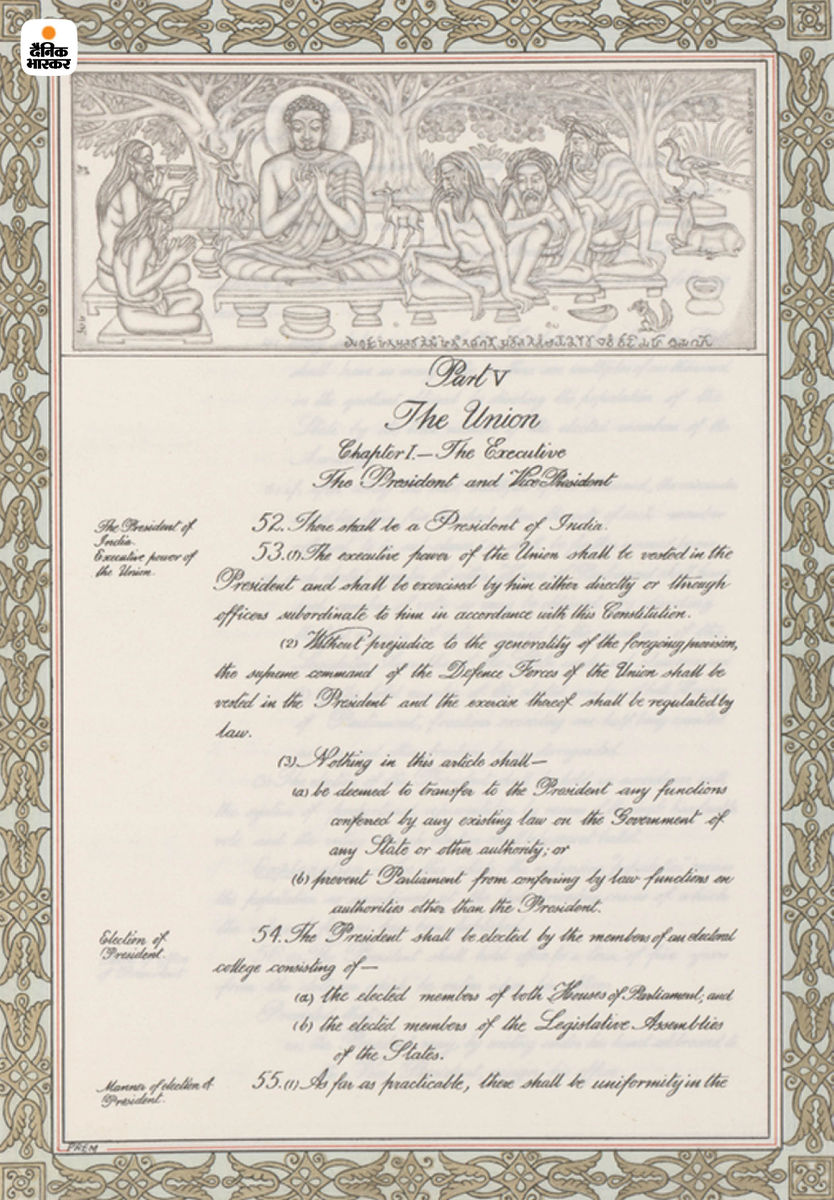 दैनिक
भास्कर
Part V
The Union
Chapter I.— The Executive
The President and Vice-President
The President of
India.
52. There shall be a President of India.
Executive power of
the Union.
53. (1) The executive power of the Union shall be vested in the
President and shall be exercised by him either directly or through
officers subordinate to him in accordance with this Constitution.
(2) Without prejudice to the generality of the foregoing provision,
the supreme command of the Defence Forces of the Union shall be
vested in the President and the exercise thereof shall be regulated by
law.
(3) Nothing in this article shall—
(a) be deemed to transfer to the President any functions
conferred by any existing law on the Government of
any State or other authority; or
(b) prevent Parliament from conferring by law functions on
authorities other than the President.
Election of
President.
54. The President shall be elected by the members of an electoral
college consisting of—
(a) the elected members of both Houses of Parliament; and
(b) the elected members of the Legislative Assemblies
of the States.
Manner of election of
President.
55. (1) As far as practicable, there shall be uniformity in the
PREM